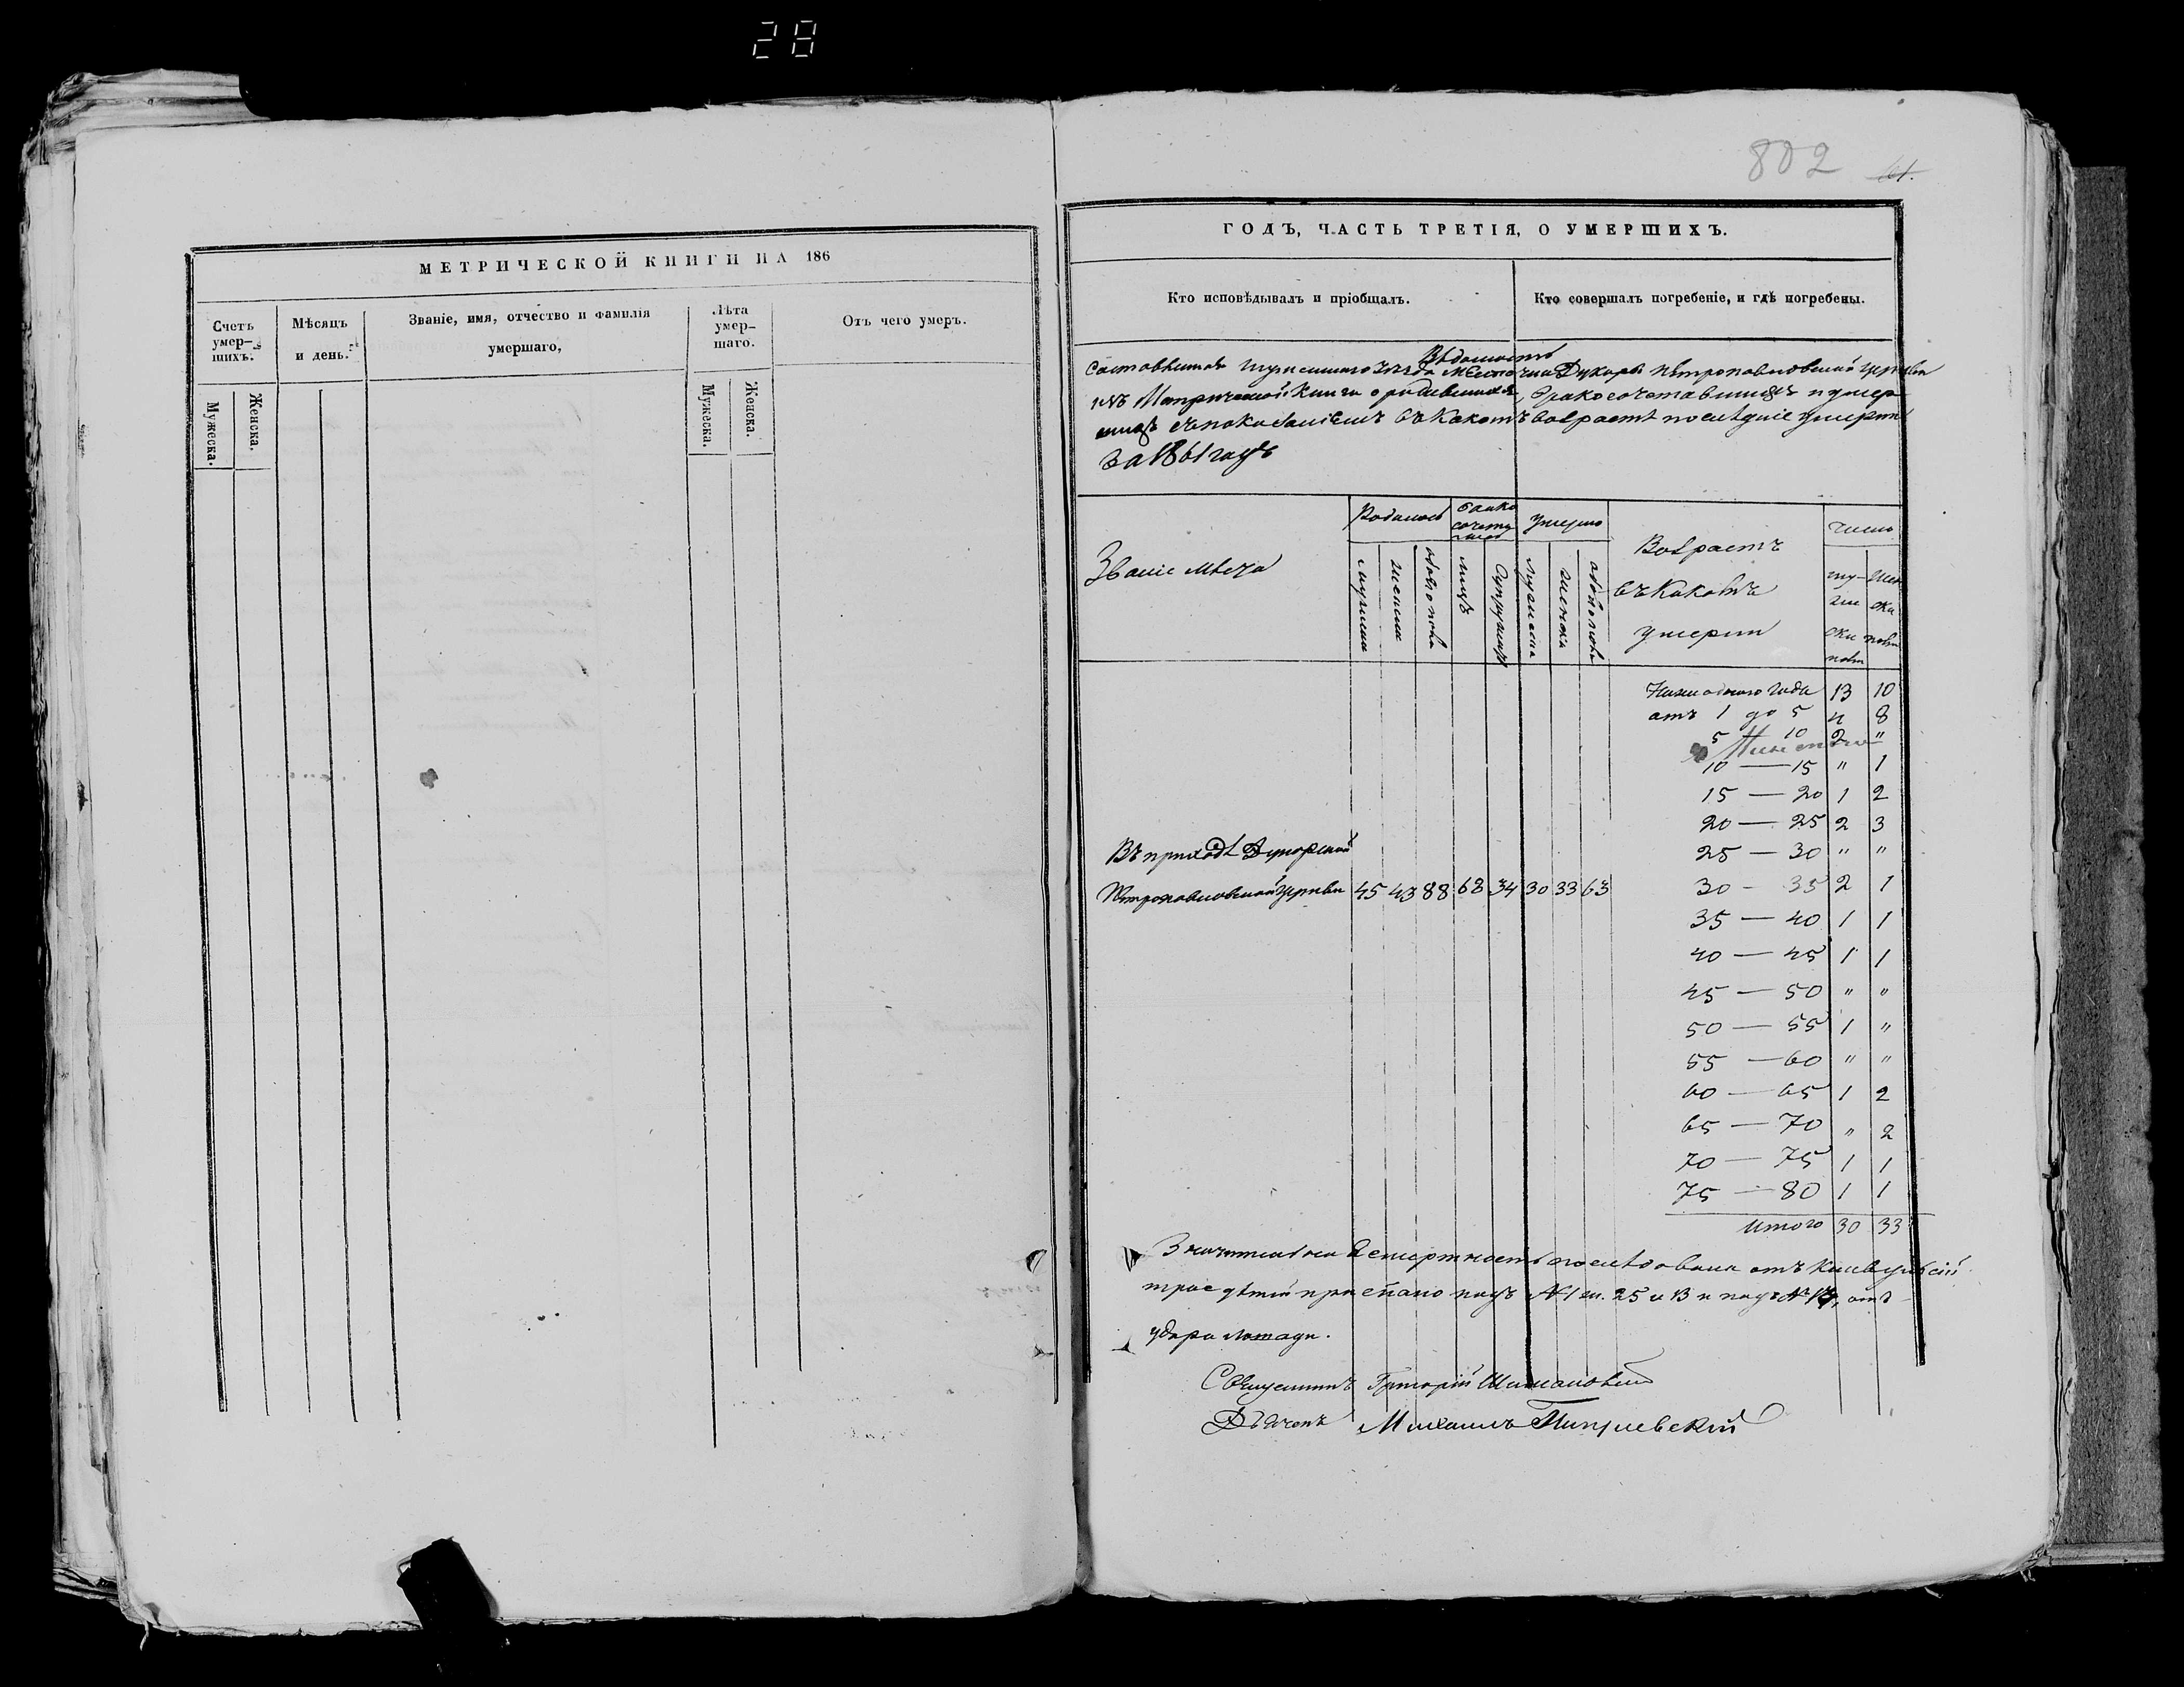 28
802
61.
МЕТРИЧЕСКОЙ КНИГИ НА 186
Счетъ умер-шихъ.
Мѣсяцъ и день.
Званіе, имя, отчество и фамилія умершаго,
Лѣта умер-шаго.
Отъ чего умеръ.
Мужеска.
Женска.
Мужеска.
Женска.
ГОДЪ, ЧАСТЬ ТРЕТІЯ, О УМЕРШИХЪ.
Кто исповѣдывалъ и пріобщалъ.
Кто совершалъ погребеніе, и гдѣ погребены.
Вѣдомость
Составленная Игуменскаго уѣзда Мѣстечка Дукоры Петропавловской церкви
изъ Метрической Книги о родившихся, бракосочетавшихся и умер-
шихъ съ показаніемъ въ какомъ возрастѣ послѣдніе умерли
за 1861 годъ
Званіе мѣста
Родилось
Брако сочета лось
Умерло
Возрастъ въ каковомъ умерли
число
мужска
женска
обоего пола
лицъ
Супружествъ
мужеска
женска
обоего пола
му-жеска пола
женска пола
Ниже одного года 13 10
отъ 1 до 5 4 8
5 10 2 "
10 — 15 " 1
15 — 20 1 2
20 — 25 2 3
25 — 30 " "
30 - 35 2 1
35 — 40 1 1
40 — 45 1 1
45 — 50 " "
50 — 55 1 "
55 — 60 " "
60 — 65 1 2
65 — 70 " 2
70 — 75 1 1
75 — 80 1 1
Итого 30 33
Въ приходѣ Дукорской
Петропавловской Церкви 45 43 88 68 34 30 33 63
Значительная смертность послѣдовала отъ
трое дѣтей под № 1 25 и 13 и подъ № отъ
удара лошади.
Священникъ Григорій
Дьячекъ Михаилъ